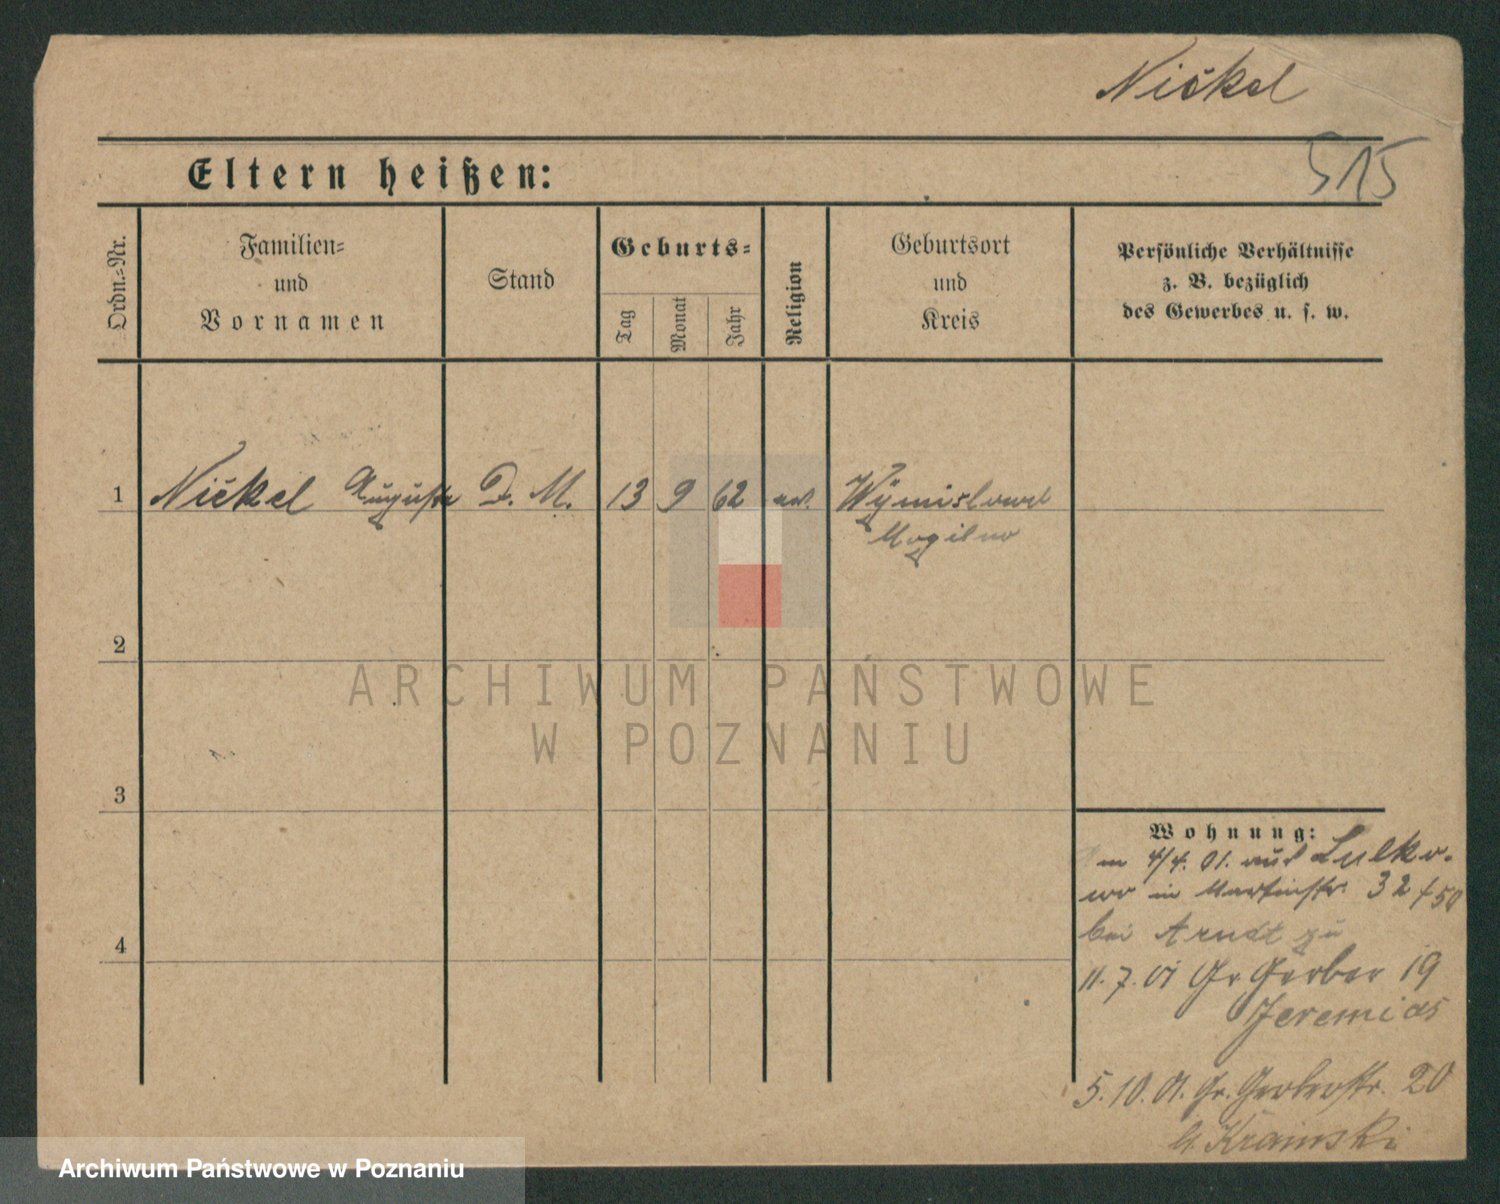 Nickel
515
Eltern heißen:
Ordn.-Nr.
Familien-
und
Vornamen
Stand
Geburts-
Tag
Monat
Jahr
Religion
Geburtsort
und
Kreis
Persönliche Verhältnisse
z. B. bezüglich
des Gewerbes u. s. w.
1 Nickel Auguste D. M. 13 9 62 ev. Wymislowo
Mogilno
2
3
4
ARCHIWUM PAŃSTWOWE
W POZNANIU
Wohnung:
4/4. 01. aus Lulko-
wo in Martinstr. 32
bei Arndt zu
11. 7. 01 Gr. Gerber 19
Jeremias
5. 10. 01. Gr. Gerberstr. 20
b. Krainski
Archiwum Państwowe w Poznaniu